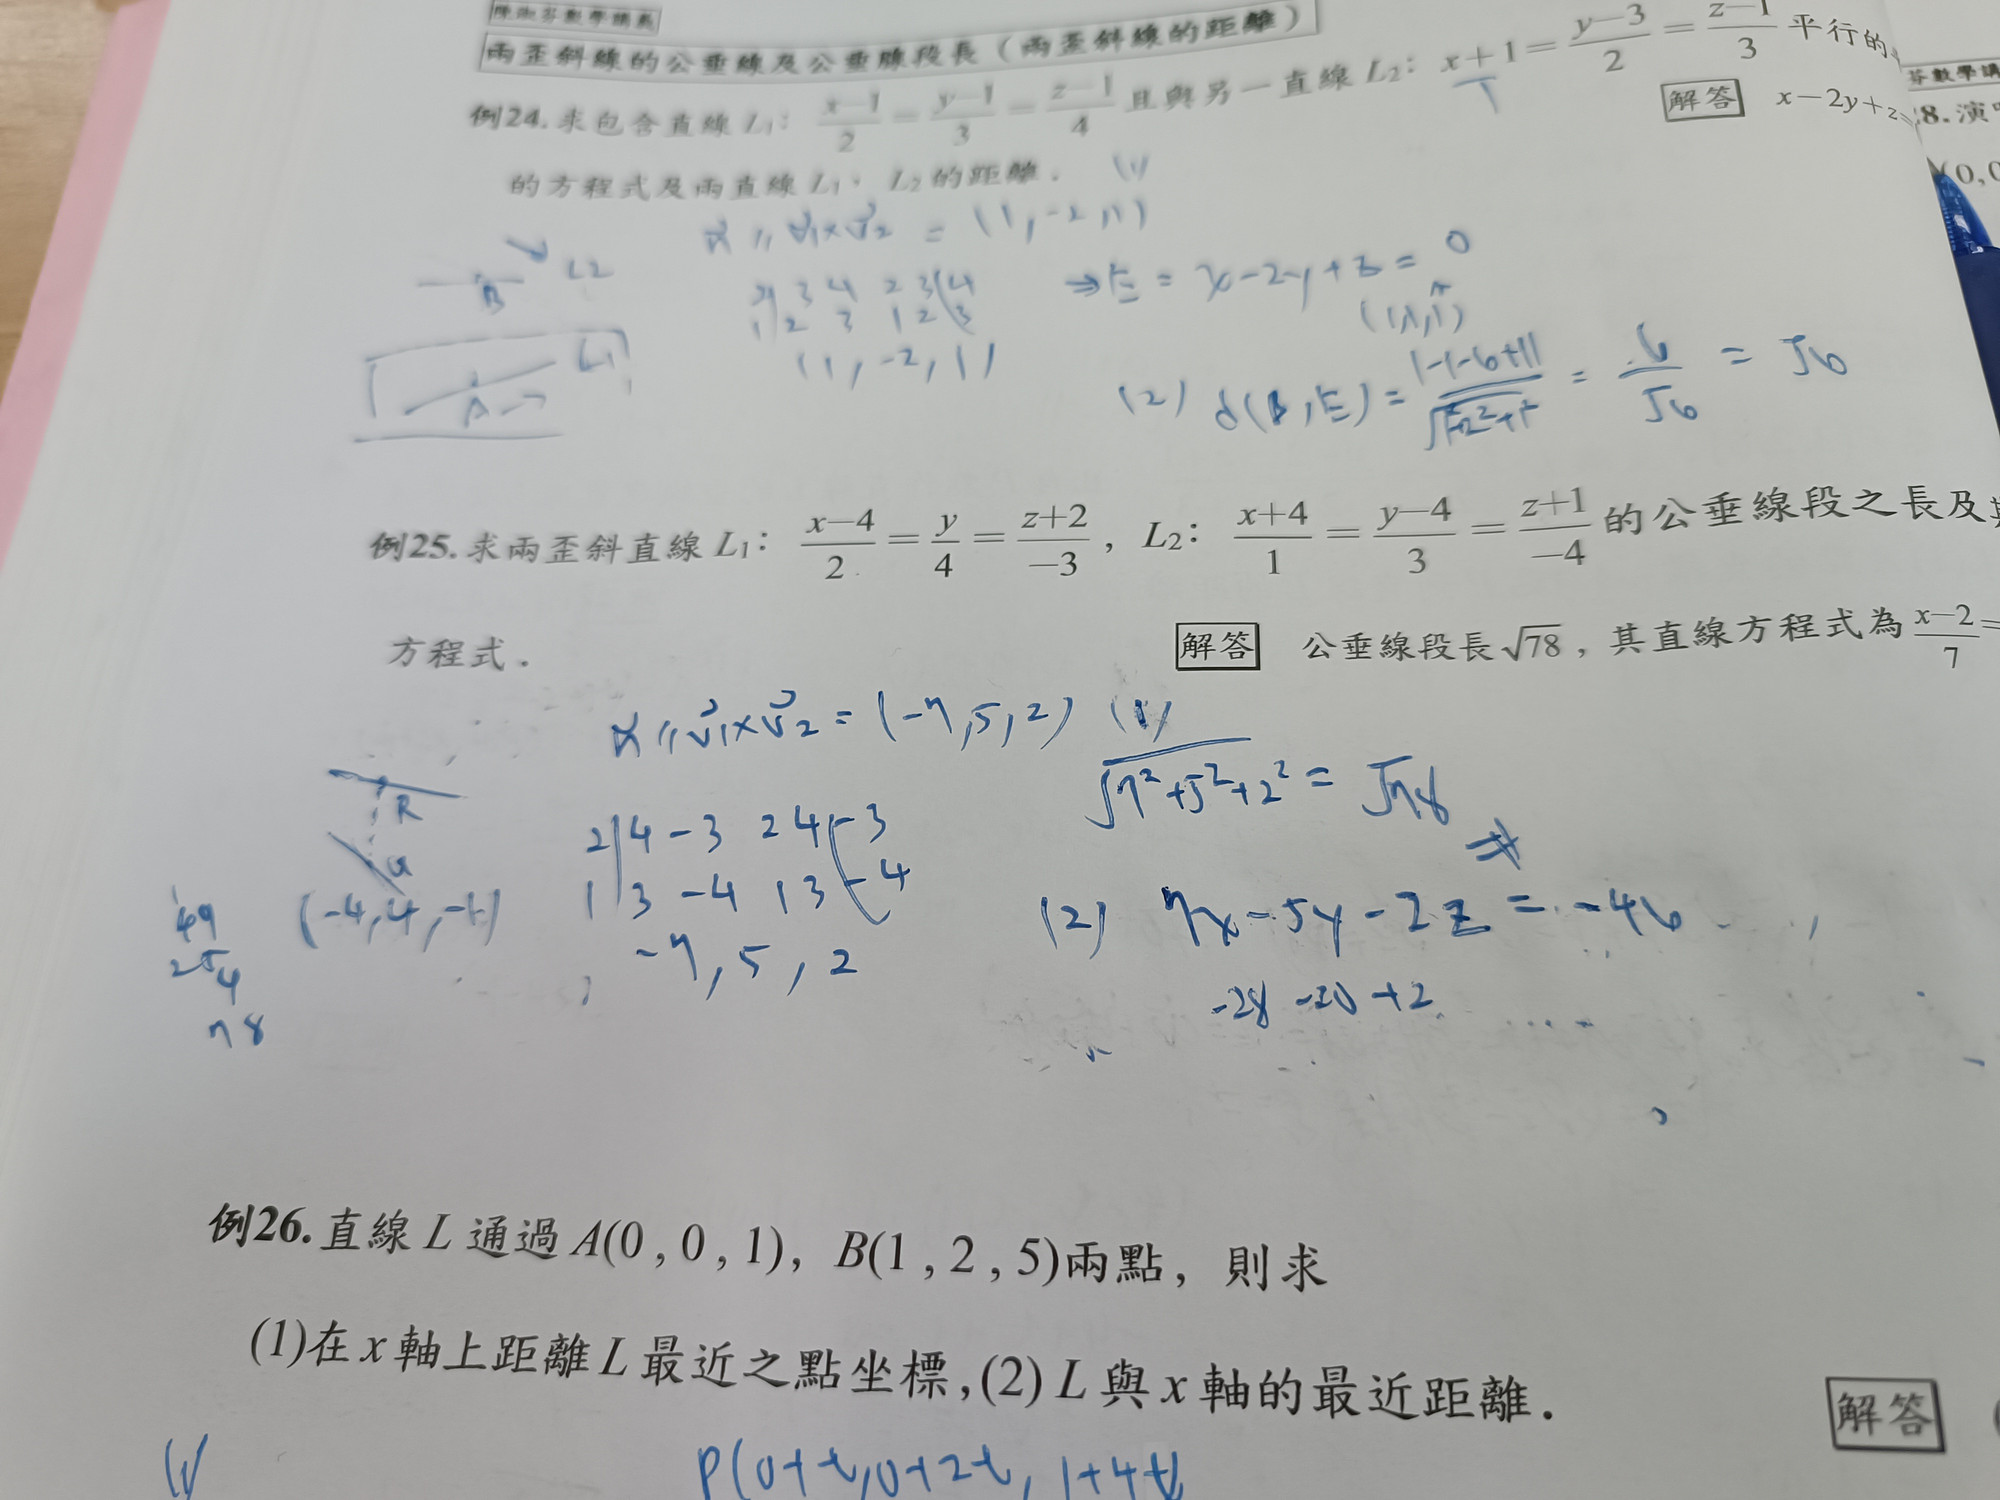 陳淑芬數學講義
兩歪斜線的公垂線及公垂線段長（兩歪斜線的距離）
例24. 求包含直線 L₁： (x−1)/2 = (y−1)/3 = (z−1)/4 且與另一直線 L₂： x+1 = (y−3)/2 = (z−1)/3 平行的
解答 x−2y+z=
的方程式及兩直線 L₁、L₂ 的距離．
(1)
n⃗ // v⃗₁×v⃗₂ = (1, -2, 1)
2 3 4 2 3 4
1 2 3 1 2 3
(1, -2, 1)
⇒ E = x-2y+z = 0
A
(1,1,1)
L2
B
L1
A
(2) d(B, E) = |-1-6+1| / √1²+2²+1² = 6/√6 = √6
例25. 求兩歪斜直線 L₁： (x−4)/2 = y/4 = (z+2)/−3 ， L₂： (x+4)/1 = (y−4)/3 = (z+1)/−4 的公垂線段之長及其
方程式．
解答 公垂線段長√78，其直線方程式為 (x−2)/7 =
n⃗ // v⃗₁×v⃗₂ = (-7, 5, 2)
(1)
√7²+5²+2² = √78
R
Q
(-4, 4, -1)
2 4 -3 2 4 -3
1 3 -4 1 3 -4
-7, 5, 2
49
25
4
78
(2) 7x-5y-2z = -46
-28 -20 +2
例26. 直線 L 通過 A(0 , 0 , 1)， B(1 , 2 , 5)兩點， 則求
(1)在 x 軸上距離 L 最近之點坐標,(2) L 與 x 軸的最近距離．
解答 (
(1)
P(0+t, 0+2t, 1+4t)
芬數學講
8. 演
(0,0